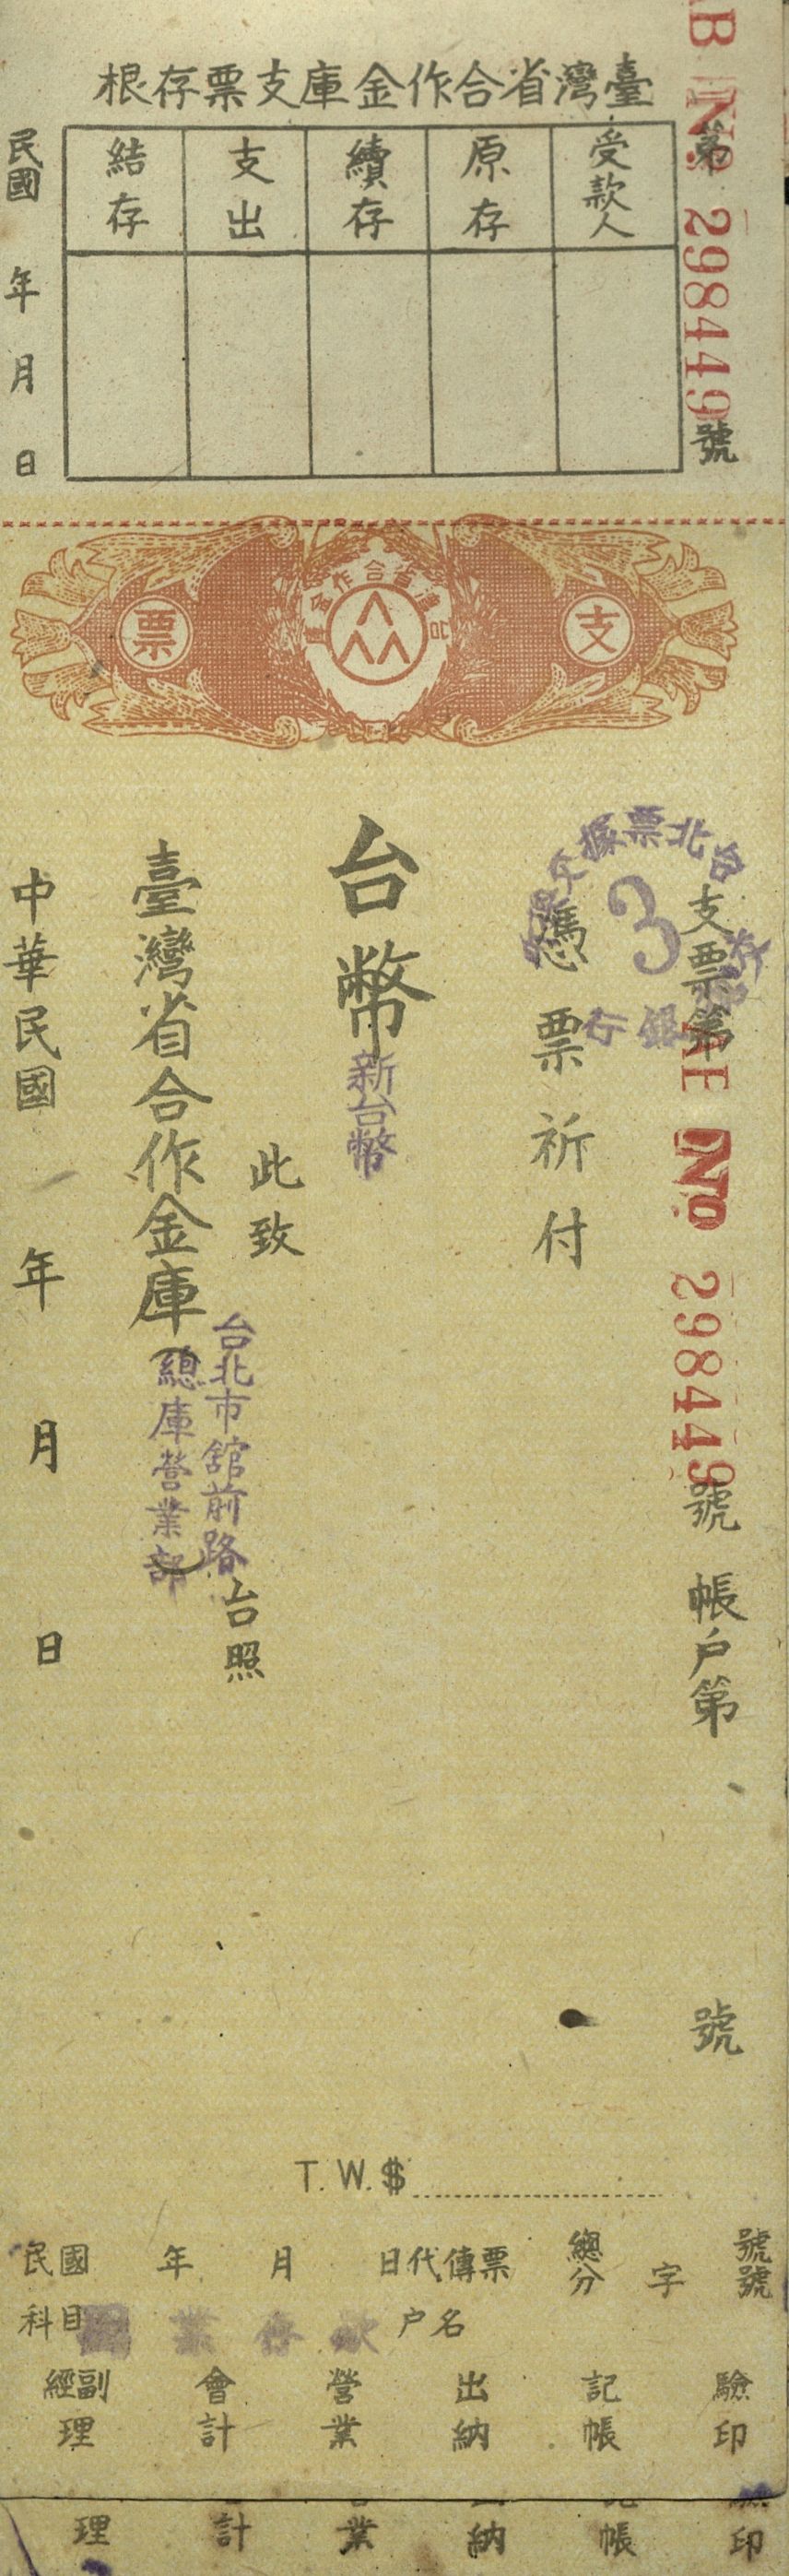 臺灣省合作金庫支票存根
第
AB No 298449
號
受款人
原存
續存
支出
結存
民國 年 月 日
支
臺灣省合作金庫
票
台北票據交換
3
銀行
支票第
AE No 298449
號 帳戶第 號
憑票祈付
台幣
新台幣
此致
臺灣省合作金庫
台北市舘前路
(總庫營業部)
台照
中華民國 年 月 日
T.W.$
民國 年 月 日代傳票 總分 字 號號
科目 業存款 戶名
經副理 會計 營業 出納 記帳 驗印
理 計 業 納 帳 印